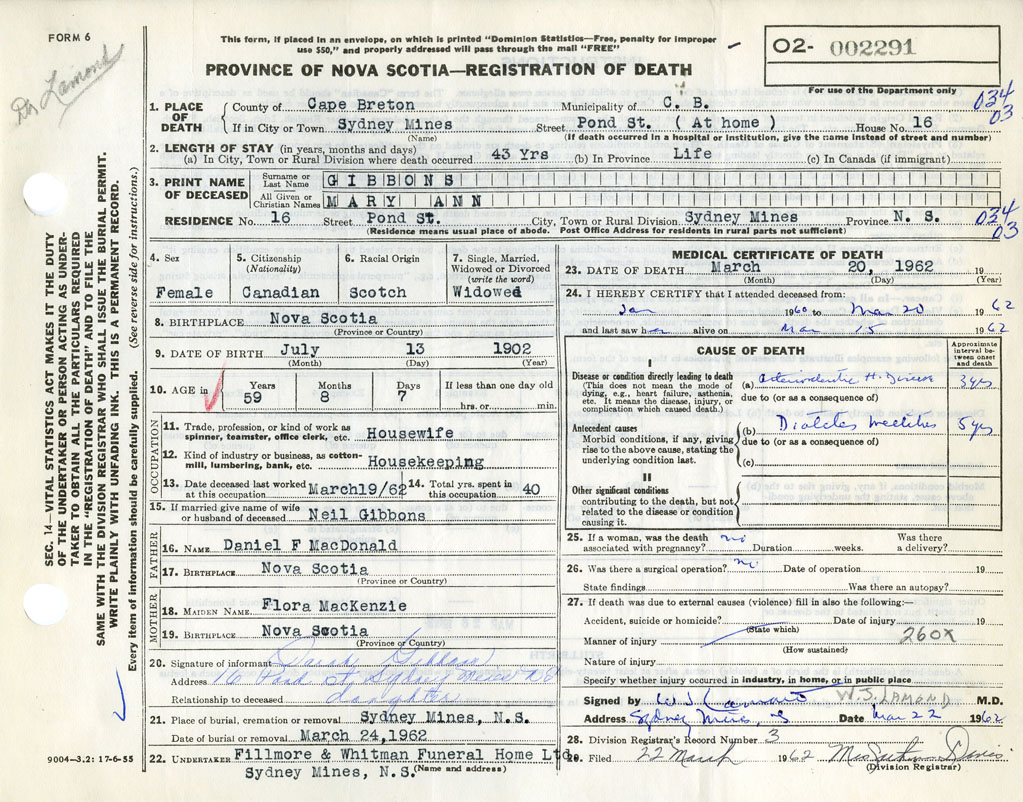 FORM 6
Dr Lamond
This form, if placed in an envelope, on which is printed "Dominion Statistics—Free, penalty for improper
use $50," and properly addressed will pass through the mail "FREE"
PROVINCE OF NOVA SCOTIA—REGISTRATION OF DEATH
O2- 002291
For use of the Department only
034
03
1. PLACE OF DEATH
County of Cape Breton Municipality of C. B.
If in City or Town Sydney Mines Street Pond St. ( At home ) House No. 16
(Name) (If death occurred in a hospital or institution, give the name instead of street and number)
2. LENGTH OF STAY (in years, months and days)
(a) In City, Town or Rural Division where death occurred 43 Yrs (b) In Province Life (c) In Canada (if immigrant)
3. PRINT NAME OF DECEASED
Surname or Last Name GIBBONS
All Given or Christian Names MARY ANN
RESIDENCE No. 16 Street Pond St. City, Town or Rural Division Sydney Mines Province N. S.
(Residence means usual place of abode. Post Office Address for residents in rural parts not sufficient)
034
03
SEC. 14—VITAL STATISTICS ACT MAKES IT THE DUTY
OF THE UNDERTAKER OR PERSON ACTING AS UNDER-
TAKER TO OBTAIN ALL THE PARTICULARS REQUIRED
IN THE "REGISTRATION OF DEATH" AND TO FILE THE
SAME WITH THE DIVISION REGISTRAR WHO SHALL ISSUE THE BURIAL PERMIT.
WRITE PLAINLY WITH UNFADING INK. THIS IS A PERMANENT RECORD.
Every item of information should be carefully supplied. (See reverse side for instructions.)
4. Sex
Female
5. Citizenship
(Nationality)
Canadian
6. Racial Origin
Scotch
7. Single, Married,
Widowed or Divorced
(write the word)
Widowed
8. BIRTHPLACE Nova Scotia
(Province or Country)
9. DATE OF BIRTH July 13 1902
(Month) (Day) (Year)
10. AGE in
Years Months Days If less than one day old
59 8 7 hrs. or min.
OCCUPATION
11. Trade, profession, or kind of work as
spinner, teamster, office clerk, etc. Housewife
12. Kind of industry or business, as cotton-
mill, lumbering, bank, etc. Housekeeping
13. Date deceased last worked
at this occupation March19/62
14. Total yrs. spent in
this occupation 40
15. If married give name of wife
or husband of deceased Neil Gibbons
FATHER
16. NAME Daniel F MacDonald
17. BIRTHPLACE Nova Scotia
(Province or Country)
MOTHER
18. MAIDEN NAME Flora MacKenzie
19. BIRTHPLACE Nova Scotia
(Province or Country)
20. Signature of informant Gibbons
Address 16 Pond St Sydney Mines N S
Relationship to deceased daughter
21. Place of burial, cremation or removal Sydney Mines, N.S.
Date of burial or removal March 24,1962
22. UNDERTAKER Fillmore & Whitman Funeral Home Ltd.
Sydney Mines, N.S. (Name and address)
9004—3.2: 17-6-55
MEDICAL CERTIFICATE OF DEATH
23. DATE OF DEATH March 20, 1962 19
(Month) (Day) (Year)
24. I HEREBY CERTIFY that I attended deceased from:
Jan 1960 to Mar 20 1962
and last saw her alive on Mar 15 1962
CAUSE OF DEATH
Approximate
interval be-
tween onset
and death
I
Disease or condition directly leading to death
(This does not mean the mode of
dying, e.g., heart failure, asthenia,
etc. It means the disease, injury, or
complication which caused death.)
(a) H. Disease 3 yrs
due to (or as a consequence of)
Antecedent causes
Morbid conditions, if any, giving
rise to the above cause, stating the
underlying condition last.
(b) Diabetes mellitus 5 yrs
due to (or as a consequence of)
(c)
II
Other significant conditions
contributing to the death, but not
related to the disease or condition
causing it.
25. If a woman, was the death no Was there
associated with pregnancy? Duration weeks. a delivery?
26. Was there a surgical operation? no Date of operation 19
State findings Was there an autopsy?
27. If death was due to external causes (violence) fill in also the following:—
Accident, suicide or homicide? Date of injury 19
(State which)
Manner of injury 260X
(How sustained)
Nature of injury
Specify whether injury occurred in industry, in home, or in public place
Signed by W J Lamond W J. LAMOND M.D.
Address Sydney Mines, NS Date Mar 22 1962
28. Division Registrar's Record Number 3
29. Filed 22 March 1962 Davis
(Division Registrar)